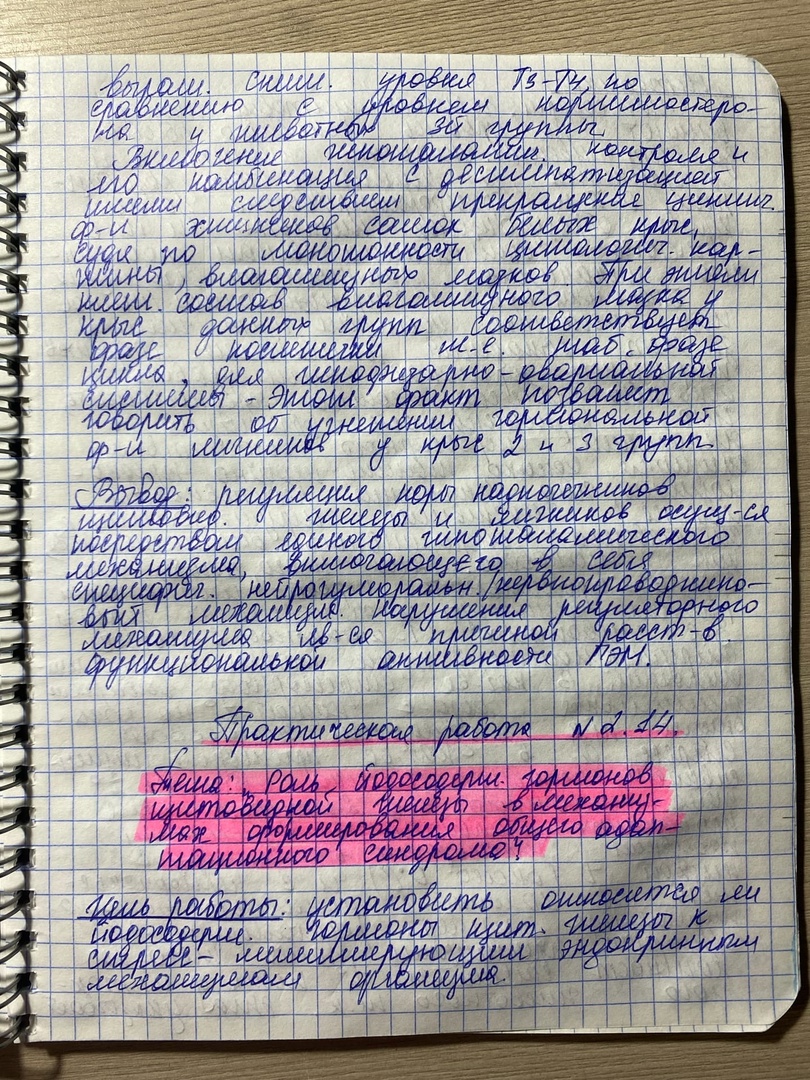 выраж. сниж. уровня Т3-Т4 по
сравнению с уровнем кортикостеро-
на у животных 3й группы.
Выключение гипоталамич. контроля и
его комбинация с десимпатизацией
имели следствием прекращение циклич.
ф-и яичников самок белых крыс,
судя по монотонности цитологич. кар-
тины влагалищных мазков. При этом
клет. состав влагалищного мазка у
крыс данных групп соответствует
фазе т.е. фазе
цикла, для гипофизарно-овариальной
системы - Этот факт позволяет
говорить об угнетении гормональной
ф-и яичников у крыс 2 и 3 групп.
Вывод: регуляция коры надпочечников
щитовид. железы и яичников осущ-ся
посредством единого гипоталамического
механизма, включающего в себя
специфич. нейрогуморальн./нервнопроводнико-
вый механизм. Нарушения регуляторного
механизма яв-ся причиной расст-в
функциональной активности ГЭМ.
Практическая работа N 2.14.
Тема: „Роль йодосодерж. гормонов
щитовидной железы в механиз-
мах формирования общего адап-
тационного синдрома"
Цель работы: установить относятся ли
йодосодерж. гормоны щит. железы к
стресс-лимитирующим эндокринным
механизмам организма.